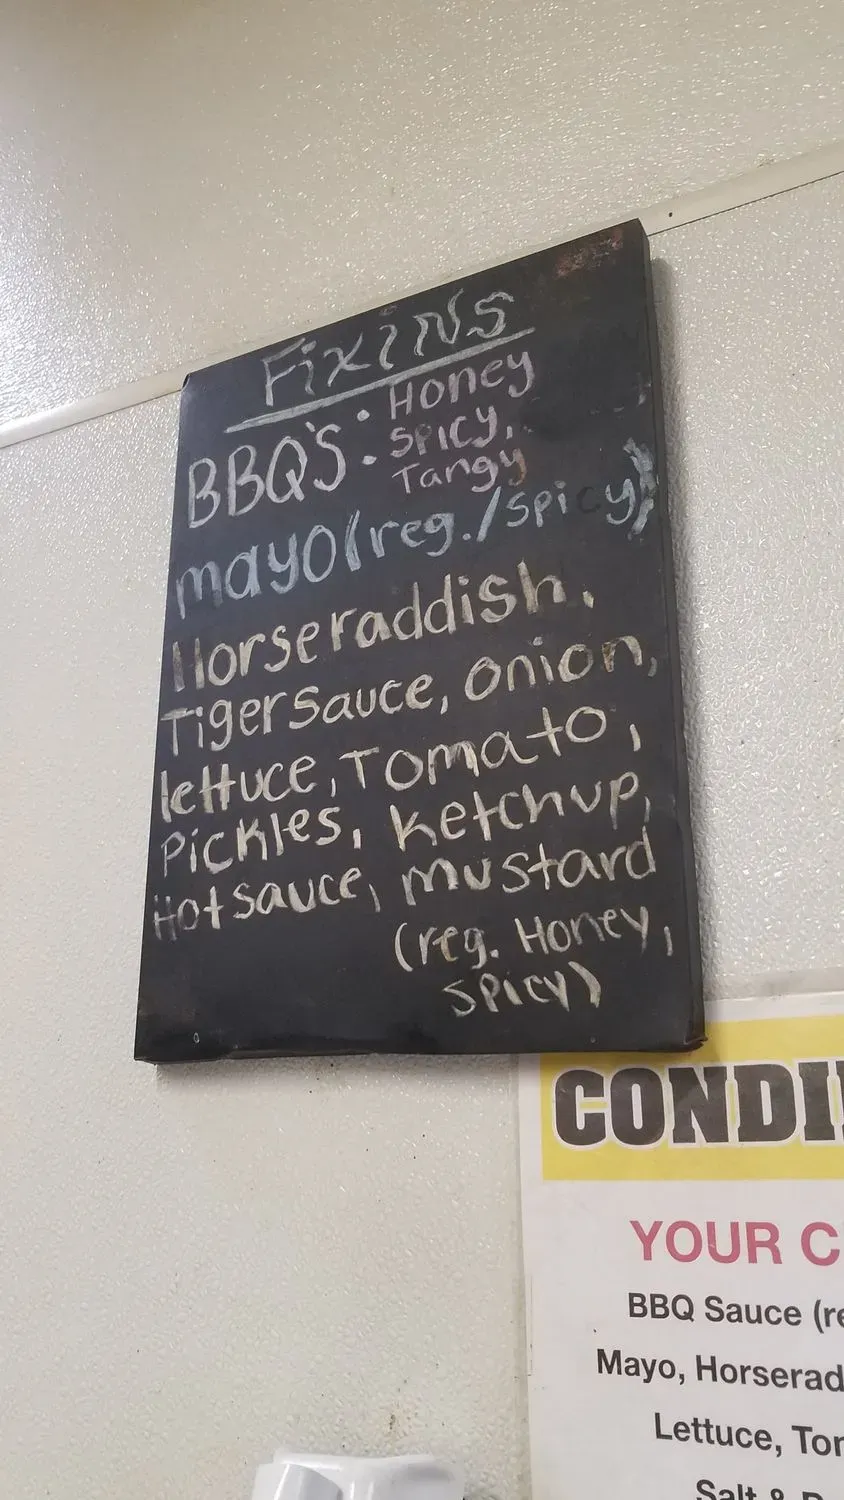 Fixins
BBQ'S: Honey
Spicy,
Tangy
mayo (reg./spicy)
Horseraddish,
Tigersauce, onion,
lettuce, Tomato,
Pickles, ketchup,
Hotsauce, mustard
(reg. Honey,
spicy)
CONDI
YOUR C
BBQ Sauce (re
Mayo, Horserad
Lettuce, Tor
Salt &